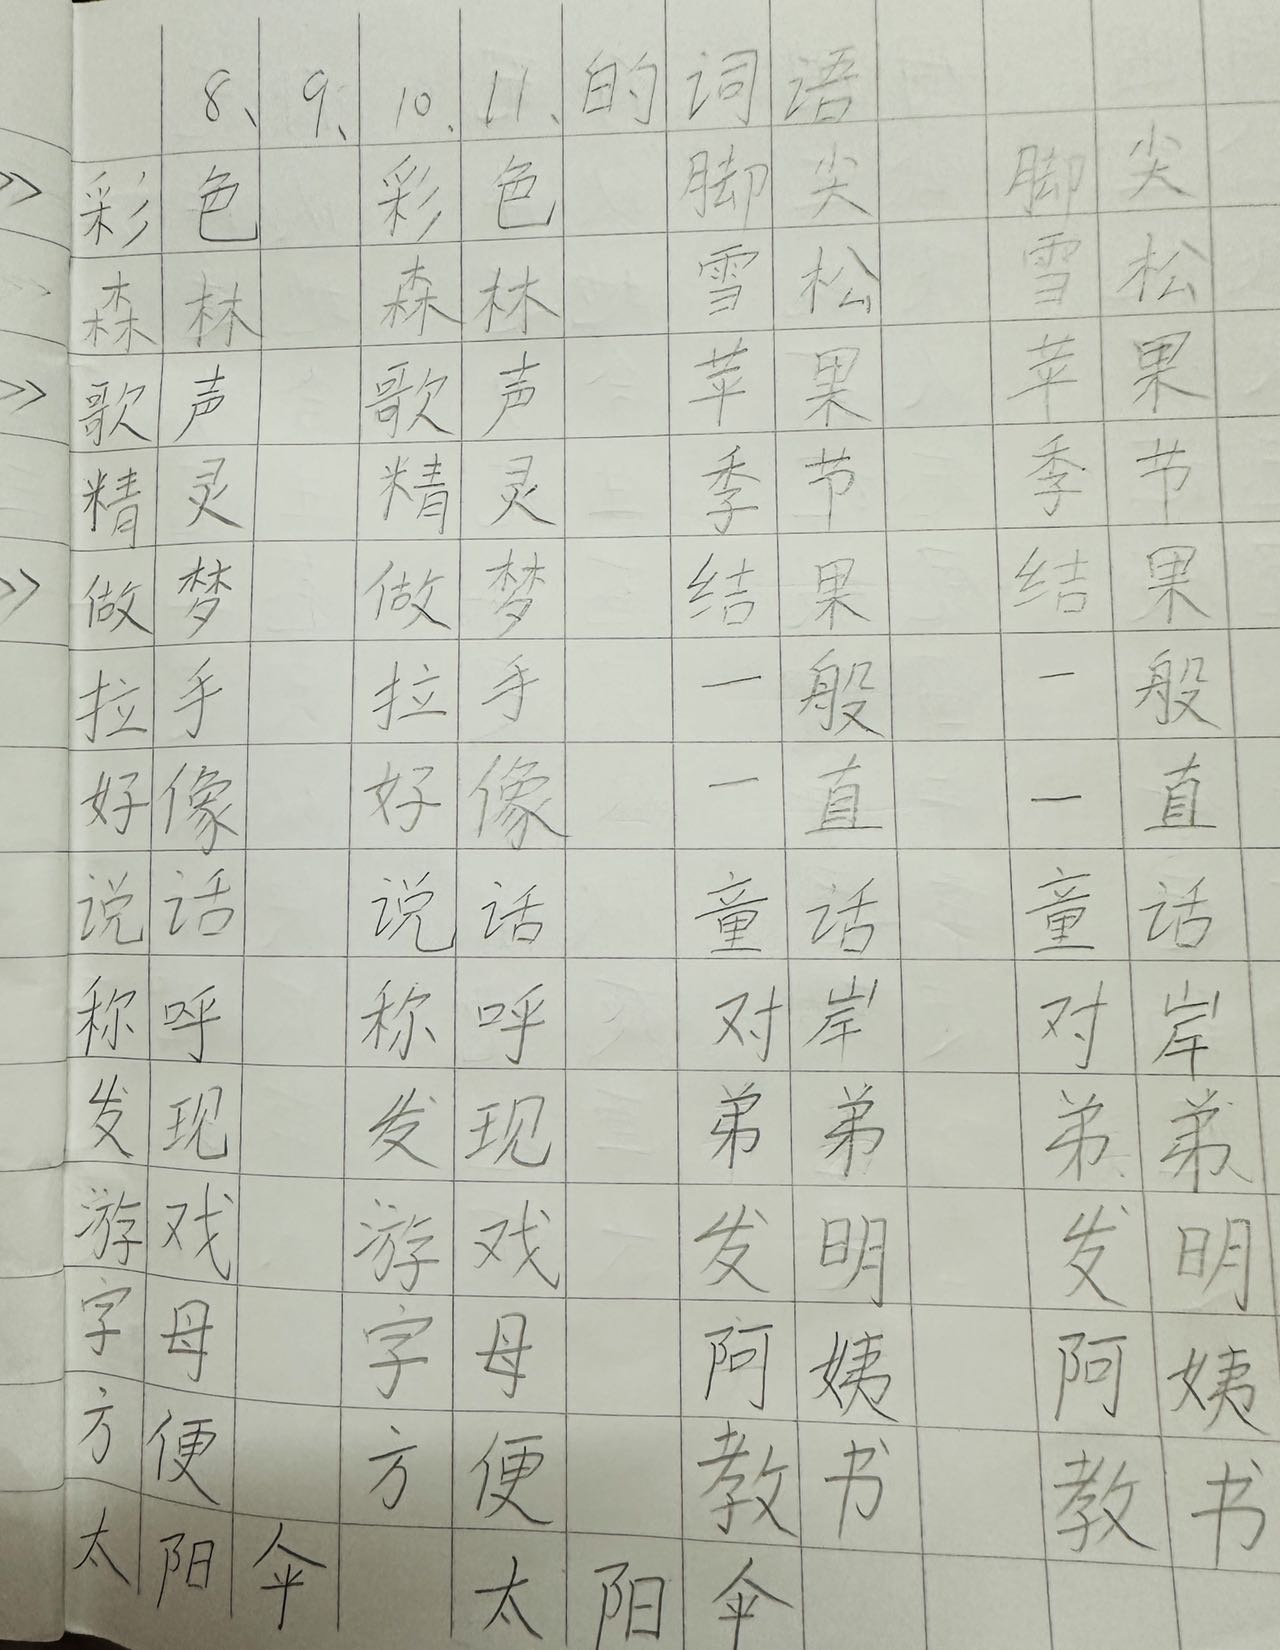 8、9、10、11、的词语
彩色 彩色 脚尖 脚尖
森林 森林 雪松 雪松
歌声 歌声 苹果 苹果
精灵 精灵 季节 季节
做梦 做梦 结果 结果
拉手 拉手 一般 一般
好像 好像 一直 一直
说话 说话 童话 童话
称呼 称呼 对岸 对岸
发现 发现 弟弟 弟弟
游戏 游戏 发明 发明
字母 字母 阿姨 阿姨
方便 方便 教书 教书
太阳伞 太阳伞